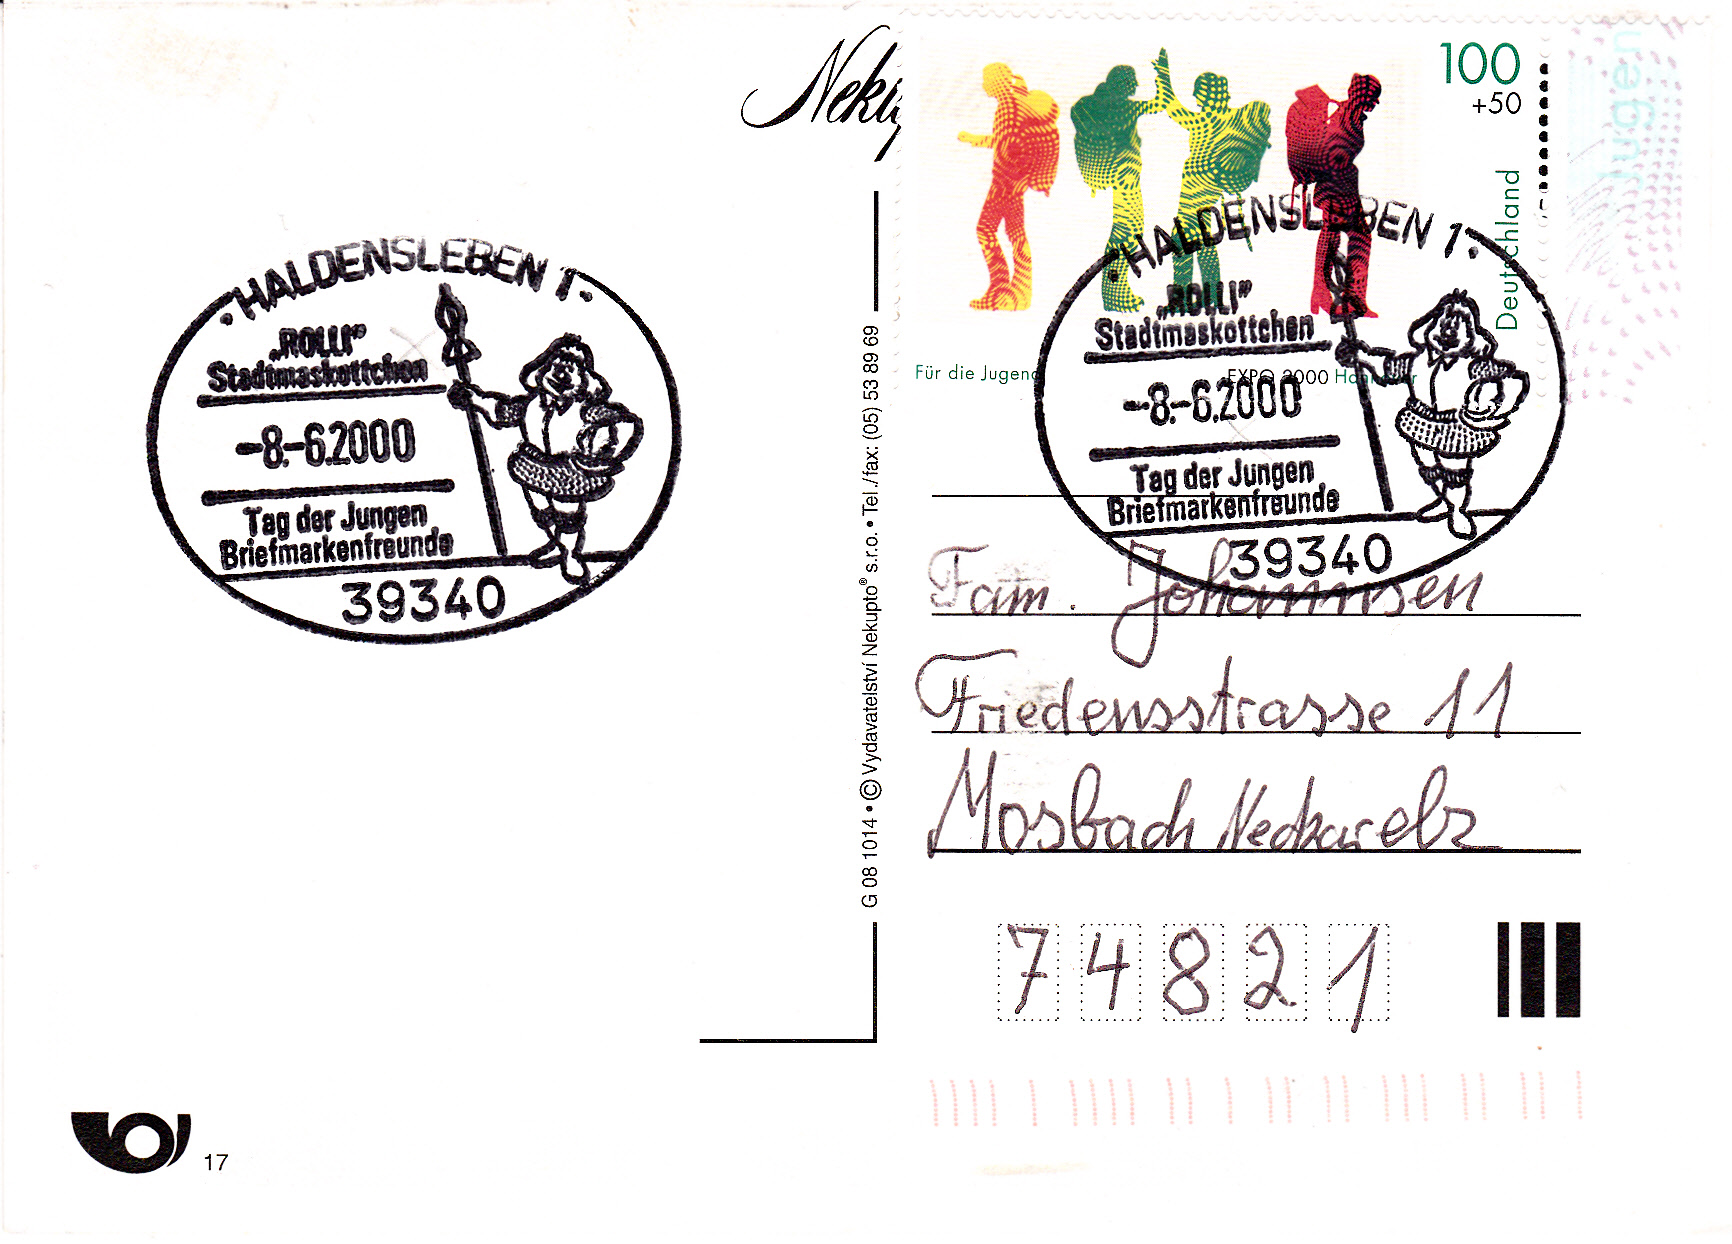 ·HALDENSLEBEN 1·
„ROLLI”
Stadtmaskottchen
-8.-6.2000
Tag der Jungen
Briefmarkenfreunde
39340
17
G 08 1014 • © Vydavatelství Nekupto® s.r.o. • Tel./fax: (05) 53 89 69
100
+50
Deutschland
Für die Jugend
EXPO 2000 Hannover
Jugen
·HALDENSLEBEN 1·
„ROLLI”
Stadtmaskottchen
-8.-6.2000
Tag der Jungen
Briefmarkenfreunde
39340
Fam. Johannsen
Friedensstrasse 11
Mosbach Neckarelz
74821